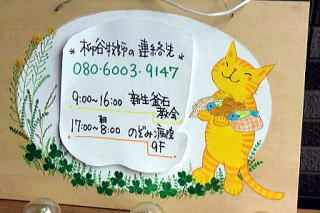 * 柳谷牧師の連絡先 *
080-6003-9147
9:00～16:00 新生釜石教会
17:00～朝8:00 のぞみ病院
9F